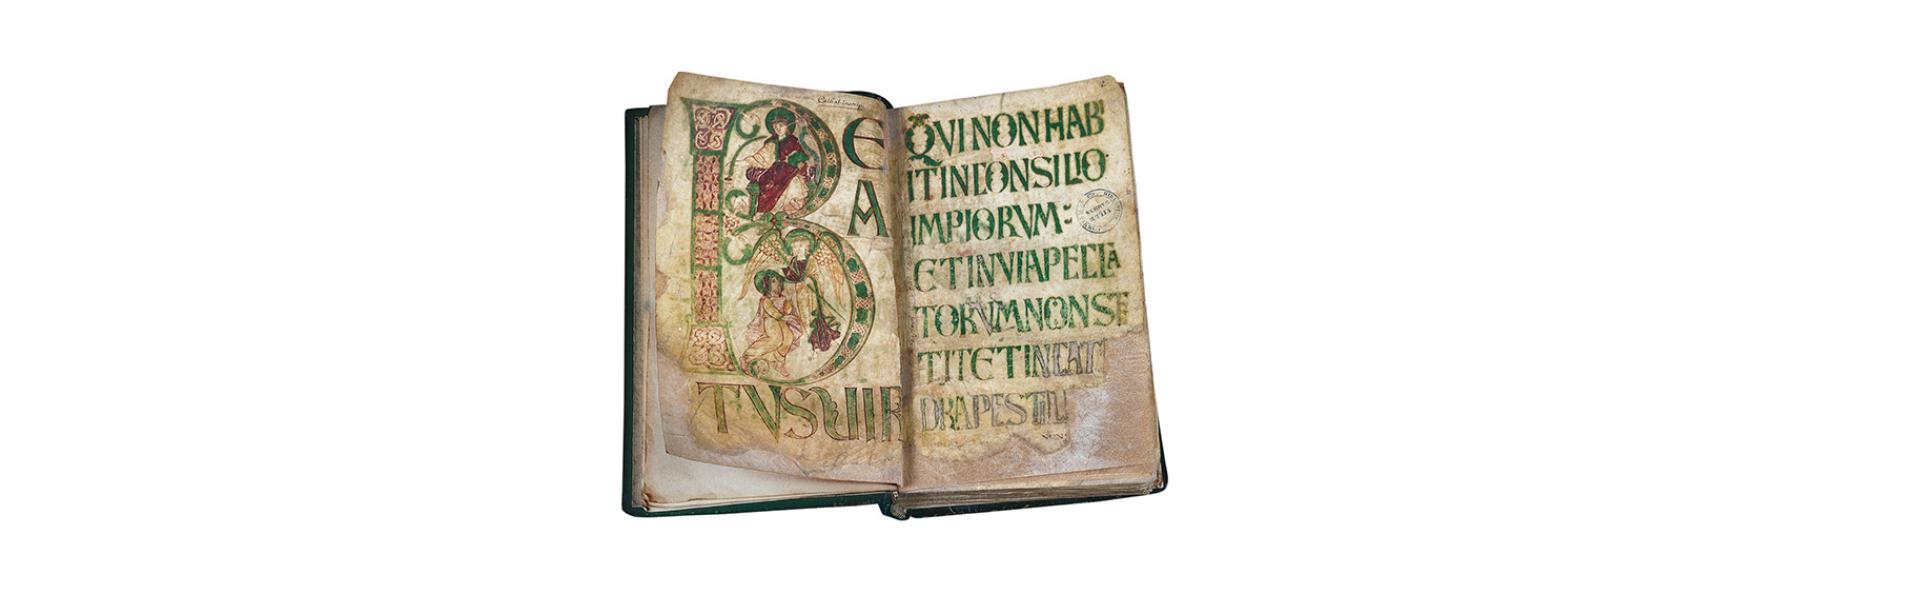 BE
A
TVS UIR
QVI NON HABI
IT IN CONSILIO
IMPIORVM:
ET IN VIA PECCA
TORVM NON STE
TIT ET IN CAT
DRA PESTIL